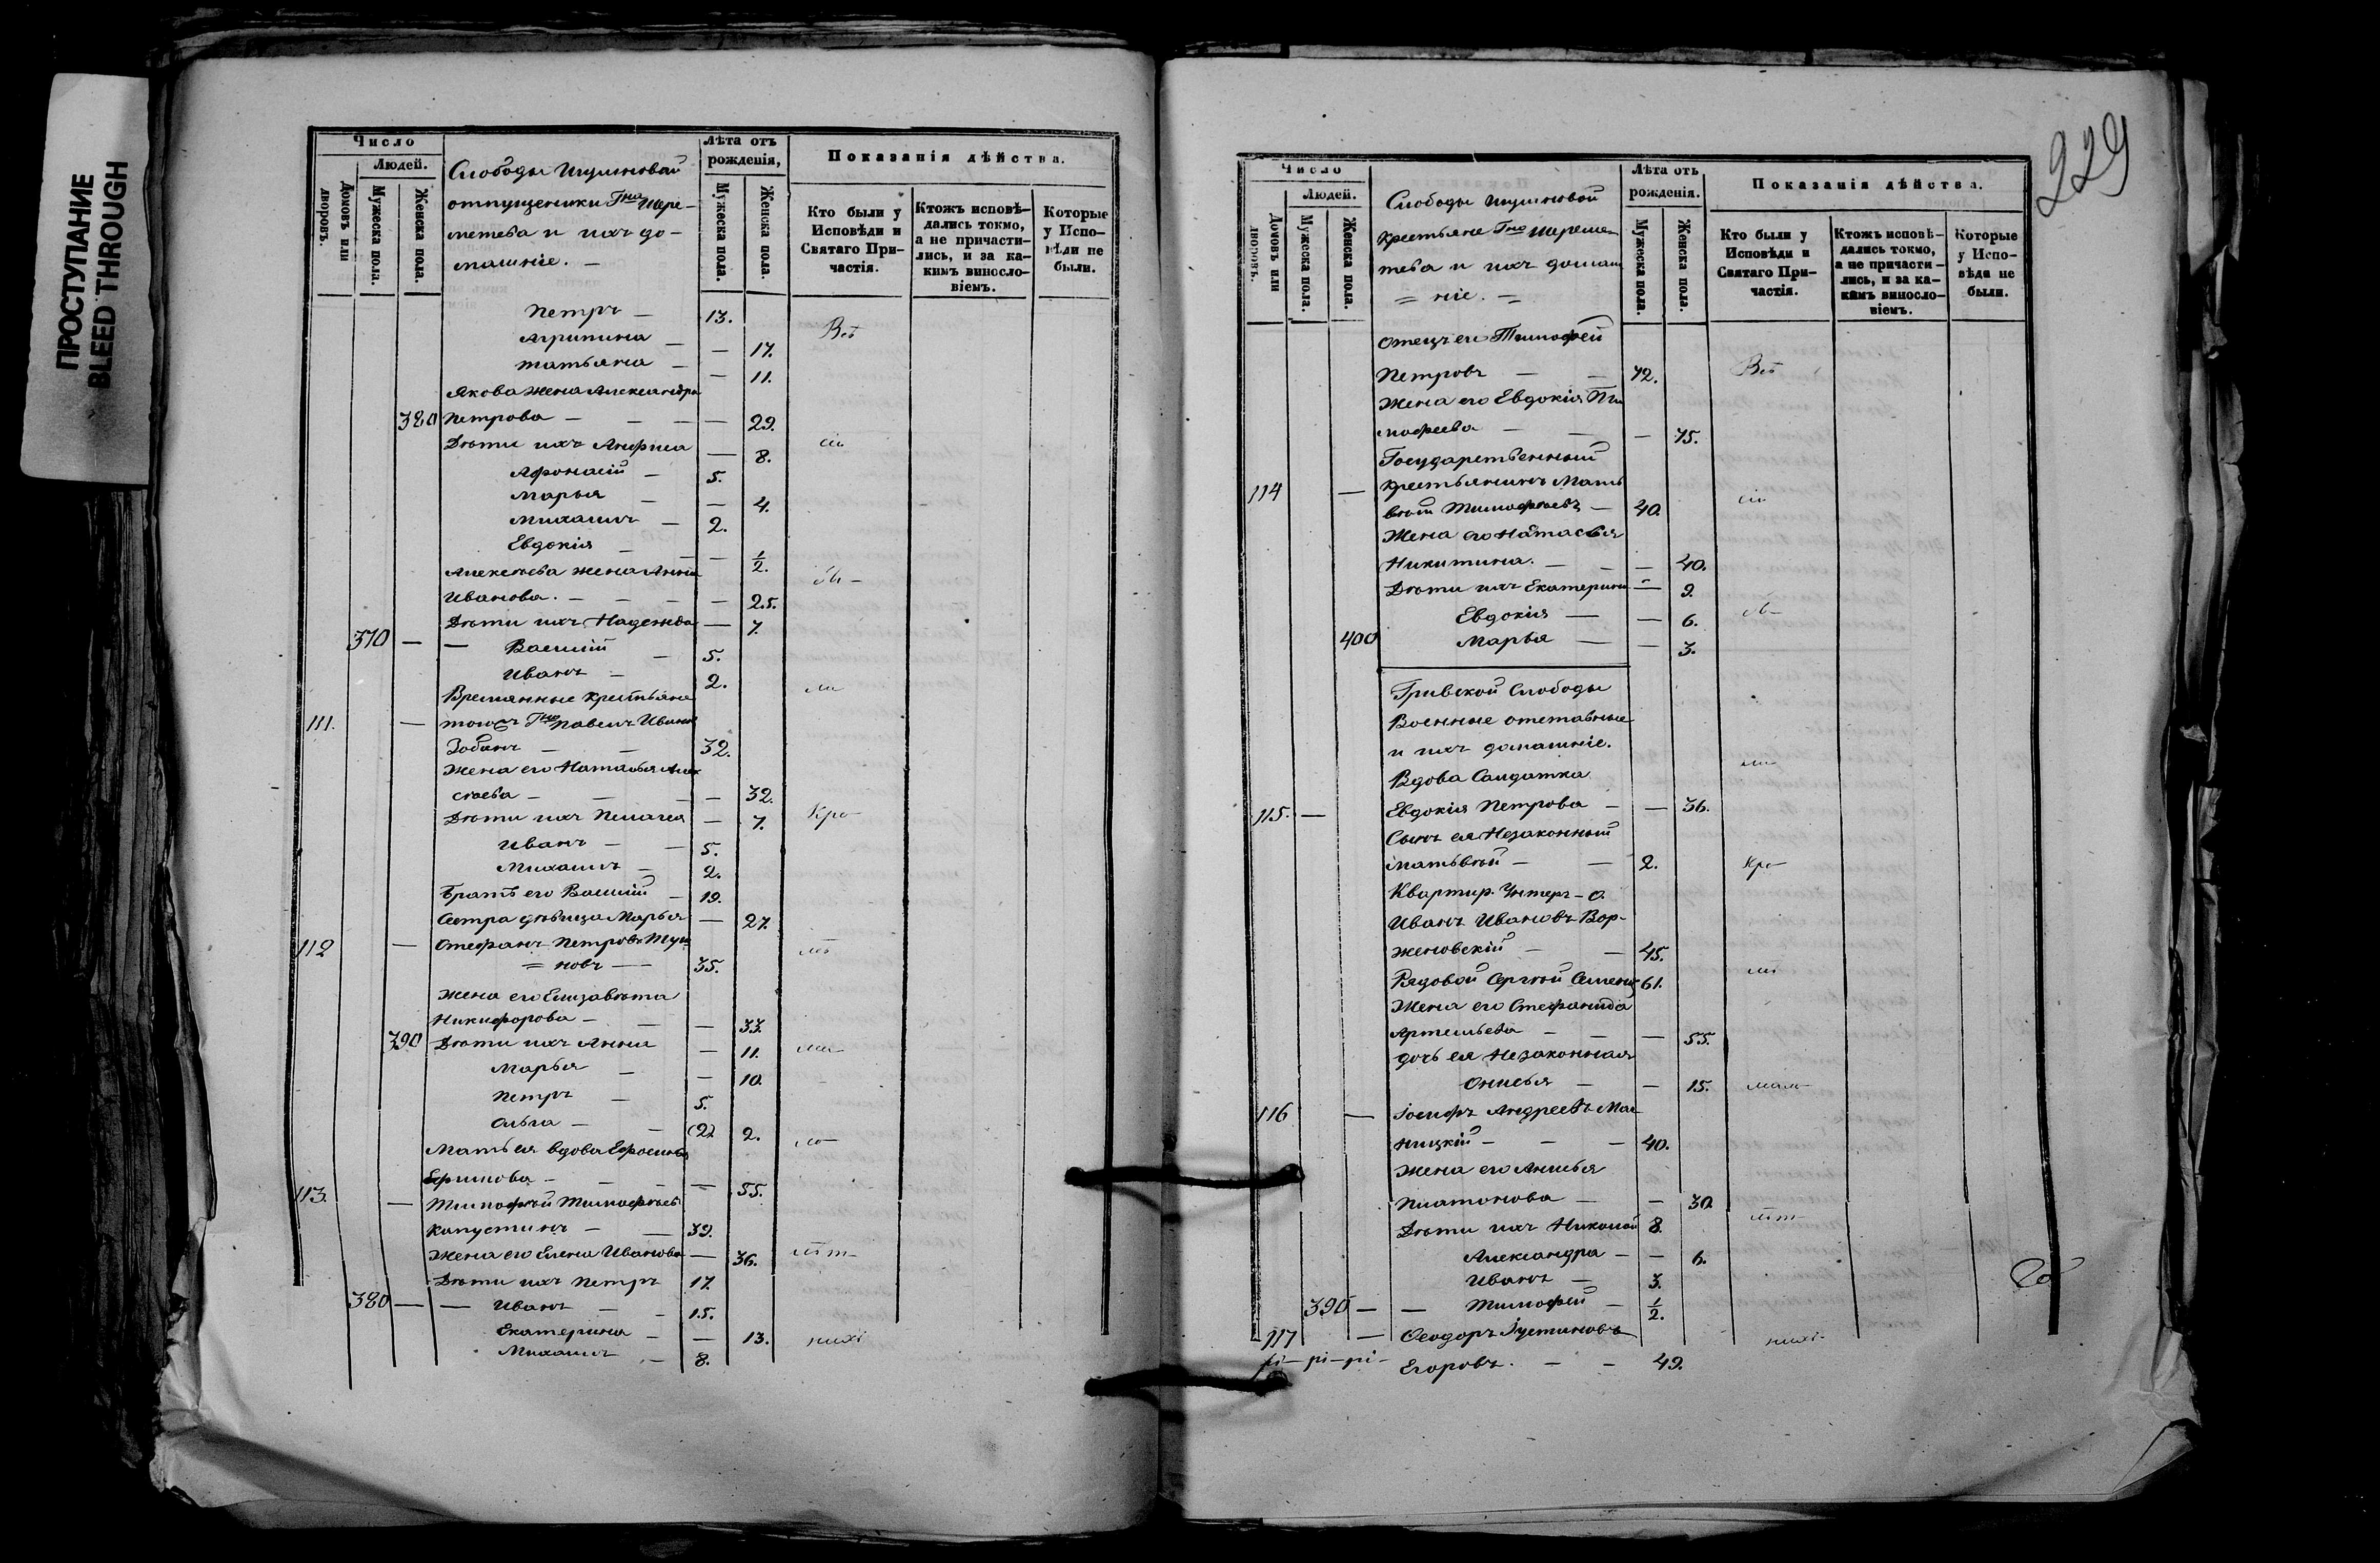 ПРОСТУПАНИЕ
BLEED THROUGH
Число
Людей.
Домовъ или дворовъ.
Мужеска пола.
Женска пола.
Слободы Шулиновой
отпущеники Гна Шере-
метева и ихъ до-
машніе. —
Лѣта отъ рожденія,
Мужеска пола.
Женска пола.
Показанія дѣйства.
Кто были у Исповѣди и Святаго Причастія.
Ктожъ исповѣдались токмо, а не причастились, и за какимъ винословіемъ.
Которые у Исповѣди не были.
Петръ — 13. Всѣ
Агрипина — — 17.
Татьяна — — 11.
Якова жена Александра
380 Петрова — — — 29.
Дѣти ихъ Анфиса — 8. сіи
Афонасій — 5.
Марья — — 4.
Михаилъ — 2.
Евдокія — — 1/2.
Алексѣева жена Анна
Иванова. — — — 25.
Дѣти ихъ Надежда — 7.
370 — — Василій — 5.
Иванъ — 2.
Времянные крестьяне
111. — тогожъ Гна Павелъ Ивановъ
Зобанъ — — 32.
Жена его Наталья Алек
сѣева — — — 32.
Дѣти ихъ Пелагея — 7. Кро-
Иванъ — — 5.
Михаилъ — 2.
Братъ его Василій — 19.
Сестра дѣвица Марья — 27.
112 — Стефанъ Петровъ
= новъ — 35.
Жена его Елизавета
Никифорова — — — 33.
390 Дѣти ихъ Анна — 11.
Марья — — 10.
Петръ — 5.
Ольга — — (2) 2.
Мать ея вдова Ефросинья
— — — 55.
113. — Тимофѣй Тимофѣевъ
Капустинъ — — 39.
Жена его Елена Иванова — 36.
Дѣти ихъ Петръ 17.
380 — — Иванъ — — 15.
Екатерина — — 13. нихъ
Михаилъ — 8.
229
Число
Людей.
Домовъ или дворовъ.
Мужеска пола.
Женска пола.
Слободы Шулиновой
Крестьяне Гна Шереме-
тева и ихъ домаш
= ніе. —
Лѣта отъ рожденія.
Мужеска пола.
Женска пола.
Показанія дѣйства.
Кто были у Исповѣди и Святаго Причастія.
Ктожъ исповѣдались токмо, а не причастились, и за какимъ винословіемъ.
Которые у Исповѣди не были.
Отецъ его Тимофей
Петровъ — — 72. Всѣ
Жена его Евдокія Ти
мофеева — — — 75.
Государственный
114 — крестьянинъ Мать
вѣй Тимофѣевъ — 40. сіи
Жена его Наталья
Никитина. — — — 40.
Дѣти ихъ Екатерина — 9.
Евдокія — — 6.
400 Марья — — 3.
Гривской Слободы
Военные отставные
и ихъ домашніе.
Вдова Салдатка
115. — Евдокія Петрова — — 36.
Сынъ ея Незаконный
Матьвѣй — — 2. Кро-
Квартир. Унтеръ-О.
Иванъ Ивановъ Вор-
женовскій — — 45.
Рядовой Сергѣй Семеновъ 61.
Жена его Стефанида
Артемьева — — — 55.
дочь ея Незаконная
Анисья — — 15. мало-
116 — Іосифъ Андреевъ
ницкій — — — 40.
Жена его Анисья
Платонова — — 30.
Дѣти ихъ Николай 8.
Александра — — 6.
Иванъ — 3.
390 — — Тимофей — 1/2.
117 — Ѳеодоръ Іустиновъ нихъ
рі — рі — рі — Егоровъ. — — 49.